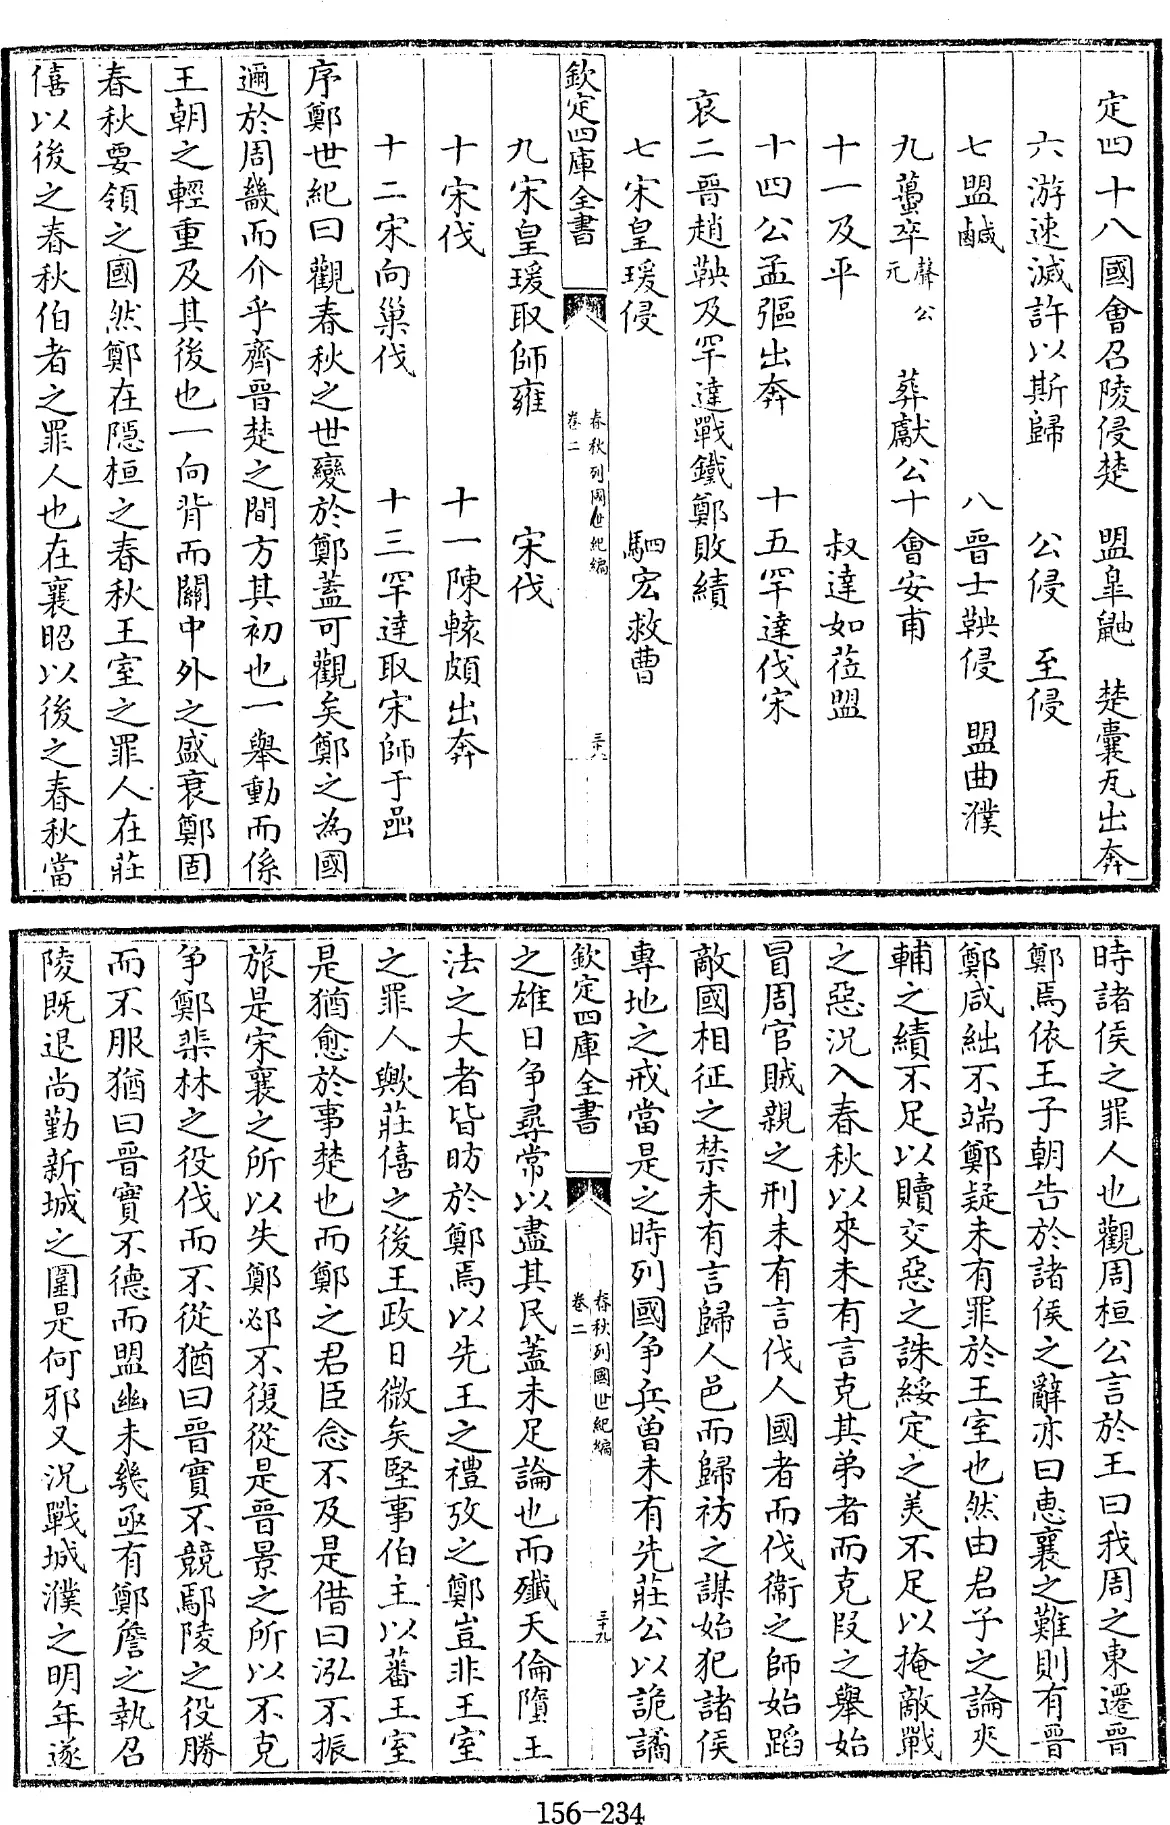 定四十八國會召陵侵楚　盟皐鼬　楚囊瓦出奔
六游速滅許以斯歸　公侵　至侵
七盟鹹　八晉士鞅侵　盟曲濮
九蠆卒聲公元　葬獻公十會安甫
十一及平　叔達如蒞盟
十四公孟彄出奔　十五罕達伐宋
哀二晉趙鞅及罕達戰鐵鄭敗績
七宋皇瑗侵　駟宏救曹
欽定四庫全書　春秋列國世紀編卷二　三十八
九宋皇瑗取師雍　宋伐
十宋伐　十一陳轅頗出奔
十二宋向巢伐　十三罕達取宋師于嵒
序鄭世紀曰觀春秋之世變於鄭蓋可觀矣鄭之為國
邇於周畿而介乎齊晉楚之間方其初也一舉動而係
王朝之輕重及其後也一向背而關中外之盛衰鄭固
春秋要領之國然鄭在隱桓之春秋王室之罪人在莊
僖以後之春秋伯者之罪人也在襄昭以後之春秋當
時諸侯之罪人也觀周桓公言於王曰我周之東遷晉
鄭焉依王子朝告於諸侯之辭亦曰惠襄之難則有晉
鄭咸絀不端鄭疑未有罪於王室也然由君子之論夾
輔之績不足以贖交惡之誅綏定之美不足以掩敵戰
之惡況入春秋以來未有言克其弟者而克段之舉始
冒周官賊親之刑未有言伐人國者而伐衞之師始蹈
敵國相征之禁未有言歸人邑而歸祊之謀始犯諸侯
專地之戒當是之時列國爭兵曾未有先莊公以詭譎
欽定四庫全書　春秋列國世紀編卷二　三十九
之雄日爭尋常以盡其民蓋未足論也而殲天倫隳王
法之大者皆昉於鄭焉以先王之禮攷之鄭豈非王室
之罪人歟莊僖之後王政日微矣堅事伯主以蕃王室
是猶愈於事楚也而鄭之君臣念不及是借曰泓不振
旅是宋襄之所以失鄭邲不復從是晉景之所以不克
爭鄭棐林之役伐而不從猶曰晉實不競鄢陵之役勝
而不服猶曰晉實不德而盟幽未幾亟有鄭詹之執召
陵既退尚勤新城之圍是何邪又況戰城濮之明年遂
156-234